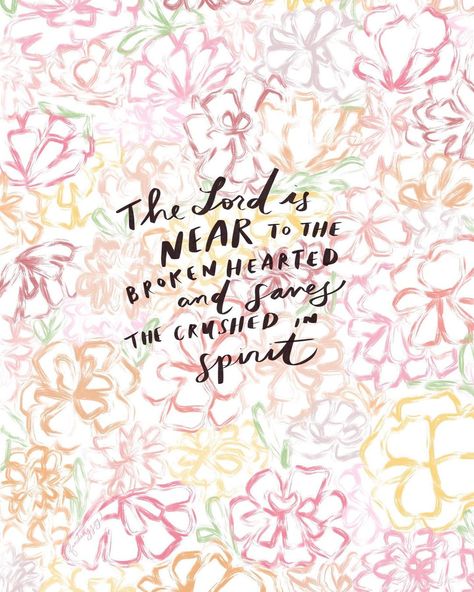 The Lord is
NEAR TO THE
BROKEN HEARTED
and saves
THE CRUSHED IN
spirit